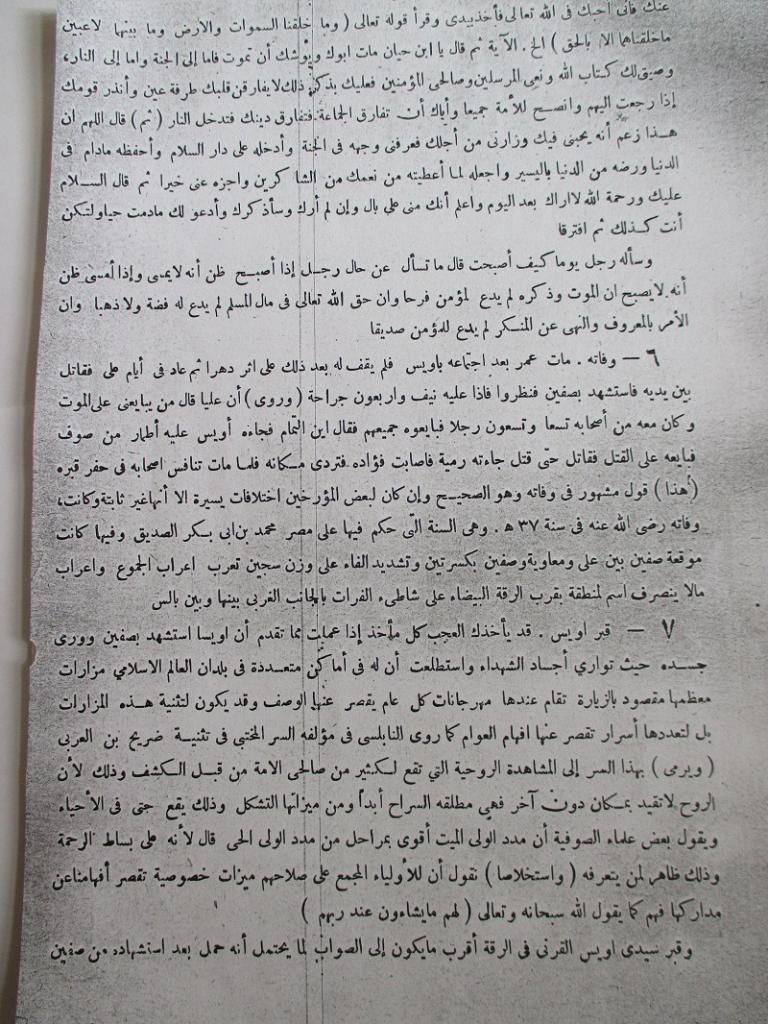 عنك فانى احبك فى الله تعالى فأخذ بيدى وقرأ قوله تعالى ( وما خلقنا السموات والأرض وما بينها لاعبين
ماخلقناهما الا بالحق ) الخ . الآية ثم قال يا ابن حيان مات ابوك ويوشك أن تموت فاما إلى الجنة واما إلى النار،
وصيق لك كتاب الله ونعى المرسلين وصالحى المؤمنين فعليك بذكر ذلك لايفارقن قلبك طرفة عين وأنذر قومك
إذا رجعت اليهم وانصح للأمة جميعا وأياك أن تفارق الجماعة فتفارق دينك فتدخل النار ( ثم ) قال اللهم ان
هذا زعم أنه يحبنى فيك وزارنى من أجلك فعرفنى وجهه فى الجنة وأدخله على دار السلام وأحفظه مادام فى
الدنيا ورضه من الدنيا باليسير واجعله لما أعطيته من نعمك من الشاكرين واجزه عنى خيرا ثم قال السلام
عليك ورحمة الله لااراك بعد اليوم واعلم أنك منى على بال وإن لم أرك وسأذكرك وأدعو لك مادمت حيا ولتكن
أنت كذلك ثم افترقا
وسأله رجل يوما كيف أصبحت قال ما تسأل عن حال رجل إذا أصبح ظن أنه لايمسى وإذا أمسى ظن
أنه لايصبح ان الموت وذكره لم يدع لمؤمن فرحا وان حق الله تعالى فى مال المسلم لم يدع له فضة ولا ذهبا وان
الأمر بالمعروف والنهى عن المنكر لم يدع للمؤمن صديقا
٦ — وفاته . مات عمر بعد اجتماعه باويس فلم يقف له بعد ذلك على اثر دهرا ثم عاد فى أيام على فقاتل
بين يديه فاستشهد بصفين فنظروا فاذا عليه نيف واربعون جراحة ( وروى ) أن عليا قال من يبايعنى على الموت
وكان معه من أصحابه تسعا وتسعون رجلا فبايعوه جميعهم فقال اين التمام فجاءه أويس عليه أطمار من صوف
فبايعه على القتل فقاتل حتى قتل جاءته رمية فاصابت فؤاده فتردى مكانه فلما مات تنافس اصحابه فى حفر قبره
( هذا ) قول مشهور فى وفاته وهو الصحيح وإن كان لبعض المؤرخين اختلافات يسيرة الا أنها غير ثابتة وكانت،
وفاته رضى الله عنه فى سنة ٣٧ ه . وهى السنة التى حكم فيها على مصر محمد بن ابى بكر الصديق وفيها كانت
موقعة صفين بين على ومعاوية وصفين بكسرتين وتشديد الفاء على وزن سجين تعرب اعراب الجموع واعراب
مالا ينصرف اسم لمنطقة بقرب الرقة البيضاء على شاطىء الفرات بالجانب الغربى بينها وبين بالس
٧ — قبر اويس . قد يأخذك العجب كل مأخذ إذا عملت مما تقدم أن اويسا استشهد بصفين وورى
جسده حيث توارى أجساد الشهداء واستطلعت أن له فى أماكن متعددة فى بلدان العالم الاسلامى مزارات
معظمها مقصود بالزيارة تقام عندها مهرجانات كل عام يقصر عنها الوصف وقد يكون لتثنية هذه المزارات
بل لتعددها أسرار تقصر عنها افهام العوام كما روى النابلسى فى مؤلفه السر المختبى فى تثنية ضريح بن العربى
( ويرمى ) بهذا السر إلى المشاهدة الروحية التي تقع لكثير من صالحى الامة من قبل الكشف وذلك لأن
الروح لاتقيد بمكان دون آخر فهى مطلقه السراح أبداً ومن ميزاتها التشكل وذلك يقع حتى فى الأحياء
ويقول بعض علماء الصوفية أن مدد الولى الميت أقوى بمراحل من مدد الولى الحى قال لأنه على بساط الرحمة
وذلك ظاهر لمن يتعرفه ( واستخلاصا ) نقول أن للأولياء المجمع على صلاحهم ميزات خصوصية تقصر أفهامنا عن
مداركها فهم كما يقول الله سبحانه وتعالى ( لهم مايشاءون عند ربهم )
وقبر سيدى اويس القرنى فى الرقة أقرب مايكون إلى الصواب لما يحتمل أنه حمل بعد استشهاده من صفين